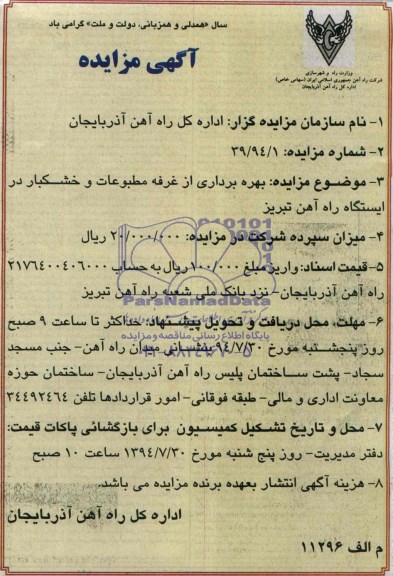 سال «همدلی و همزبانی، دولت و ملت» گرامی باد
وزارت راه و شهرسازی
شرکت راه آهن جمهوری اسلامی ایران (سهامی خاص)
اداره کل راه آهن آذربایجان
آگهی مزایده
۱- نام سازمان مزایده گزار: اداره کل راه آهن آذربایجان
۲- شماره مزایده: ۳۹/۹۴/۱
۳- موضوع مزایده: بهره برداری از غرفه مطبوعات و خشکبار در
ایستگاه راه آهن تبریز
۴- میزان سپرده شرکت در مزایده: ۲۰/۰۰۰/۰۰۰ ریال
۵- قیمت اسناد: واریز مبلغ ۱۰۰/۰۰۰ ریال به حساب ۲۱۷۶۴۰۰۴۰۶۰۰۰
راه آهن آذربایجان- نزد بانک ملی شعبه راه آهن تبریز
ParsNamadData
۶- مهلت، محل دریافت و تحویل پیشنهاد: حداکثر تا ساعت ۹ صبح
پایگاه اطلاع رسانی مناقصه و مزایده
روز پنجشنبه مورخ ۹۴/۷/۳۰ بنشانی میدان راه آهن- جنب مسجد
سجاد- پشت ساختمان پلیس راه آهن آذربایجان- ساختمان حوزه
معاونت اداری و مالی- طبقه فوقانی- امور قراردادها تلفن ۳۴۴۹۳۴۶۴
۷- محل و تاریخ تشکیل کمیسیون برای بازگشائی پاکات قیمت:
دفتر مدیریت- روز پنج شنبه مورخ ۱۳۹۴/۷/۳۰ ساعت ۱۰ صبح
۸- هزینه آگهی انتشار بعهده برنده مزایده می باشد.
اداره کل راه آهن آذربایجان
م الف ۱۱۲۹۶